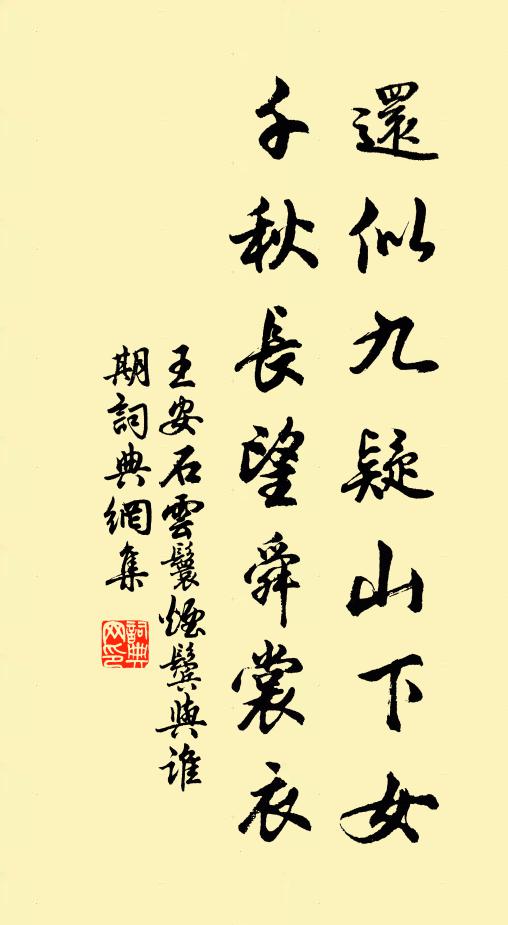 還似九疑山下女
千秋長望舜裳衣
王安石雲鬟煙鬢與誰
期詞典網集
詞典
網印